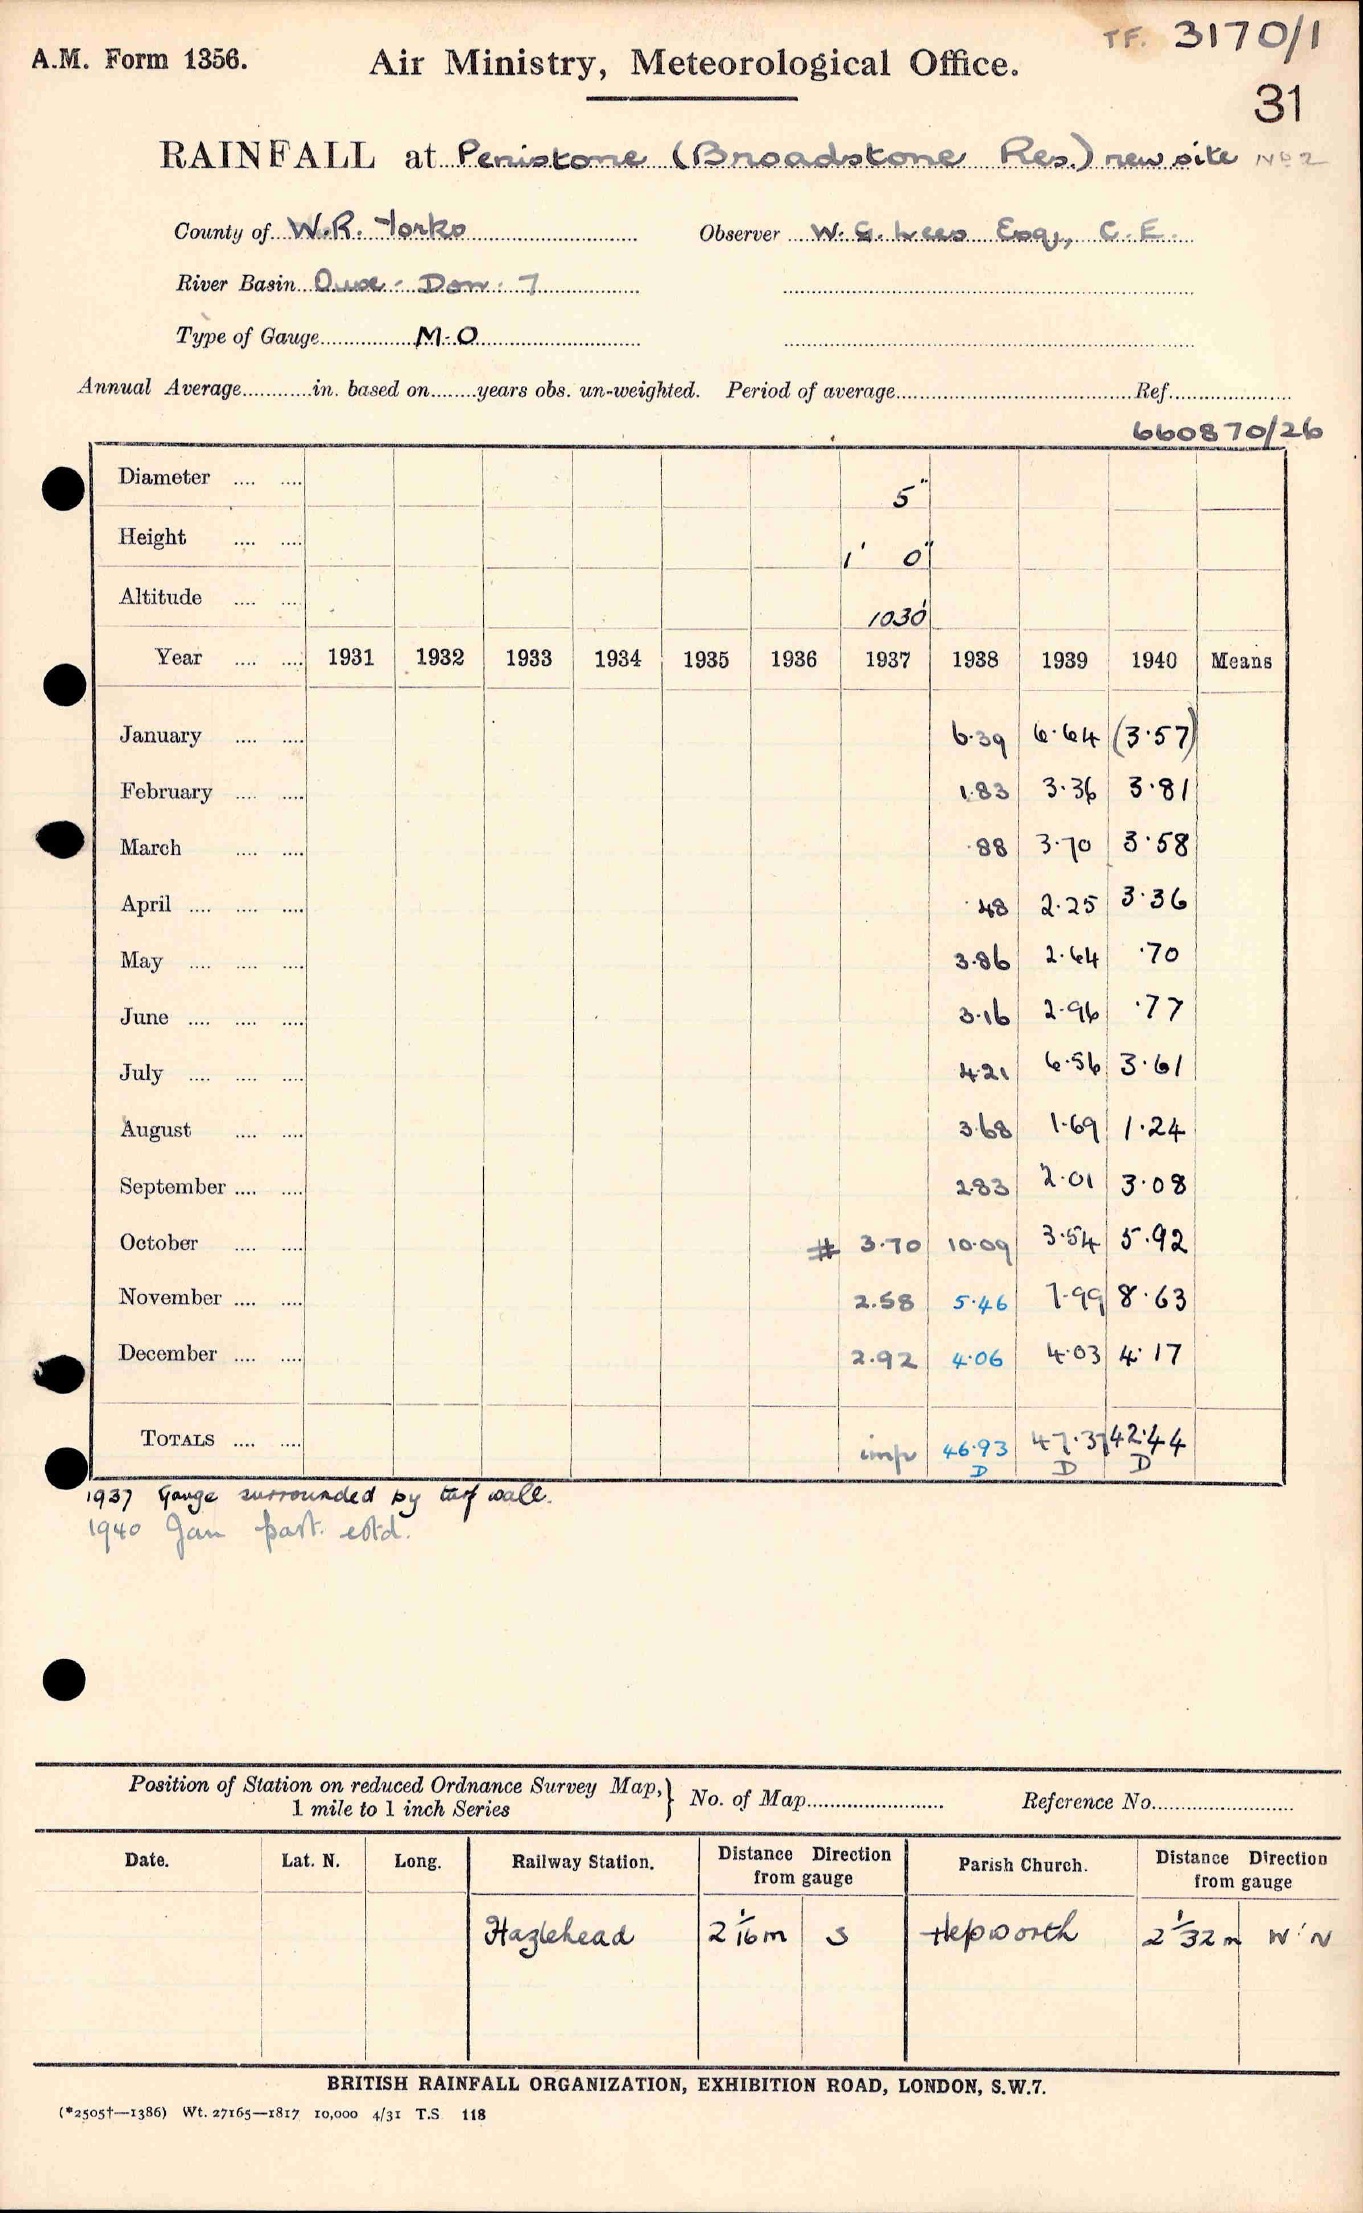 TF. 3170/1
A.M. Form 1356. Air Ministry, Meteorological Office.
31
RAINFALL at Penistone (Broadstone Res.) new site No 2
County of W.R. Yorks Observer W. G. Lees Esq., C.E.
River Basin Ouse - Don - 7
Type of Gauge M.O
Annual Average in. based on years obs. un-weighted. Period of average Ref.
660870/26
Diameter 5"
Height 1' 0"
Altitude 1030'
Year 1931 1932 1933 1934 1935 1936 1937 1938 1939 1940 Means
January 6.39 6.64 (3.57)
February 1.83 3.36 3.81
March .88 3.70 3.58
April .48 2.25 3.36
May 3.86 2.64 .70
June 3.16 2.96 .77
July 4.21 6.56 3.61
August 3.68 1.69 1.24
September 2.83 2.01 3.08
October # 3.70 10.09 3.54 5.92
November 2.58 5.46 7.99 8.63
December 2.92 4.06 4.03 4.17
TOTALS imp 46.93 47.37 42.44
D D D
1937 Gauge surrounded by turf wall.
1940 Jan part. estd.
Position of Station on reduced Ordnance Survey Map, } No. of Map Reference No.
1 mile to 1 inch Series
Date. Lat. N. Long. Railway Station. Distance Direction from gauge Parish Church. Distance Direction from gauge
Hazlehead 2 1/16 m S Hepworth 2 1/32 m W'N
BRITISH RAINFALL ORGANIZATION, EXHIBITION ROAD, LONDON, S.W.7.
(*2505†—1386) Wt. 27165—1817 10,000 4/31 T.S 118